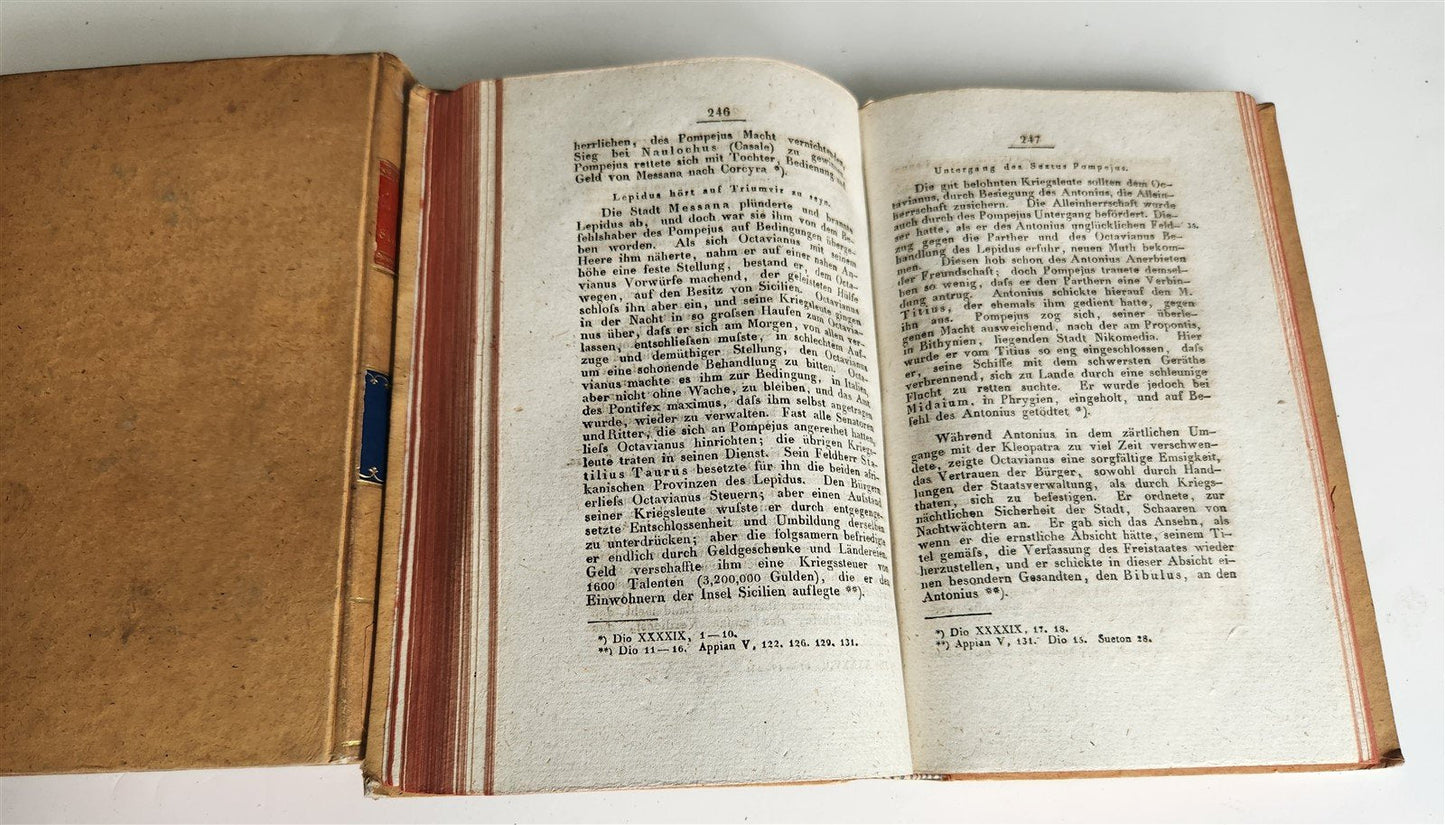 246
herrlichen, des Pompejus Macht vernichtenden
Sieg bei Naulochus (Casale) zu gewinnen.
Pompejus rettete sich mit Tochter, Bedienung und
Geld von Messana nach Corcyra *).
Lepidus hört auf Triumvir zu seyn.
Die Stadt Messana plünderte und brannte
Lepidus ab, und doch war sie ihm von dem Be-
fehlshaber des Pompejus auf Bedingungen überge-
ben worden. Als sich Octavianus mit seinem
Heere ihm näherte, nahm er auf einer nahen An-
höhe eine feste Stellung, bestand er, dem Octa-
vianus Vorwürfe machend, der geleisteten Hülfe
wegen, auf den Besitz von Sicilien. Octavianus
schloſs ihn aber ein, und seine Kriegsleute gingen
in der Nacht in so groſsen Haufen zum Octavia-
nus über, daſs er sich am Morgen, von allen ver-
lassen, entschlieſsen muſste, in schlechtem Auf-
zuge und demüthiger Stellung, den Octavianus
um eine schonende Behandlung zu bitten. Octa-
vianus machte es ihm zur Bedingung, in Italien,
aber nicht ohne Wache, zu bleiben, und das Amt
des Pontifex maximus, daſs ihm selbst angetragen
wurde, wieder zu verwalten. Fast alle Senatoren
und Ritter, die sich an Pompejus angereihet hatten,
lieſs Octavianus hinrichten; die übrigen Kriegs-
leute traten in seinen Dienst. Sein Feldherr Sta-
tilius Taurus besetzte für ihn die beiden afri-
kanischen Provinzen des Lepidus. Den Bürgern
erlieſs Octavianus Steuern; aber einen Aufstand
seiner Kriegsleute wuſste er durch entgegenge-
setzte Entschlossenheit und Umbildung derselben
zu unterdrücken; aber die folgsamern befriedigte
er endlich durch Geldgeschenke und Ländereien.
Geld verschaffte ihm eine Kriegssteuer von
1600 Talenten (3,200,000 Gulden), die er den
Einwohnern der Insel Sicilien auflegte **).
*) Dio XXXXIX, 1—10.
**) Dio 11—16. Appian V, 122. 126. 129. 131.
247
Untergang des Sextus Pompejus.
Die gut belohnten Kriegsleute sollten dem Oc-
tavianus, durch Besiegung des Antonius, die Allein-
herrschaft zusichern. Die Alleinherrschaft wurde
auch durch des Pompejus Untergang befördert. Die-
ser hatte, als er des Antonius unglücklichen Feld- 35.
zug gegen die Parther und des Octavianus Be-
handlung des Lepidus erfuhr, neuen Muth bekom-
men. Diesen hob schon des Antonius Anerbieten
der Freundschaft; doch Pompejus trauete demsel-
ben so wenig, daſs er den Parthern eine Verbin-
dung antrug. Antonius schickte hierauf den M.
Titius, der ehemals ihm gedient hatte, gegen
ihn aus. Pompejus zog sich, seiner überle-
genen Macht ausweichend, nach der am Propontis,
in Bithynien, liegenden Stadt Nikomedia. Hier
wurde er vom Titius so eng eingeschlossen, daſs
er, seine Schiffe mit dem schwersten Geräthe
verbrennend, sich zu Lande durch eine schleunige
Flucht zu retten suchte. Er wurde jedoch bei
Midaium, in Phrygien, eingeholt, und auf Be-
fehl des Antonius getödtet *).
Während Antonius in dem zärtlichen Um-
gange mit der Kleopatra zu viel Zeit verschwen-
dete, zeigte Octavianus eine sorgfältige Emsigkeit,
das Vertrauen der Bürger, sowohl durch Hand-
lungen der Staatsverwaltung, als durch Kriegs-
thaten, sich zu befestigen. Er ordnete, zur
nächtlichen Sicherheit der Stadt, Schaaren von
Nachtwächtern an. Er gab sich das Ansehn, als
wenn er die ernstliche Absicht hätte, seinem Ti-
tel gemäſs, die Verfassung des Freistaates wieder
herzustellen, und er schickte in dieser Absicht ei-
nen besondern Gesandten, den Bibulus, an den
Antonius **).
*) Dio XXXXIX, 17. 18.
**) Appian V, 131. Dio 15. Sueton 28.